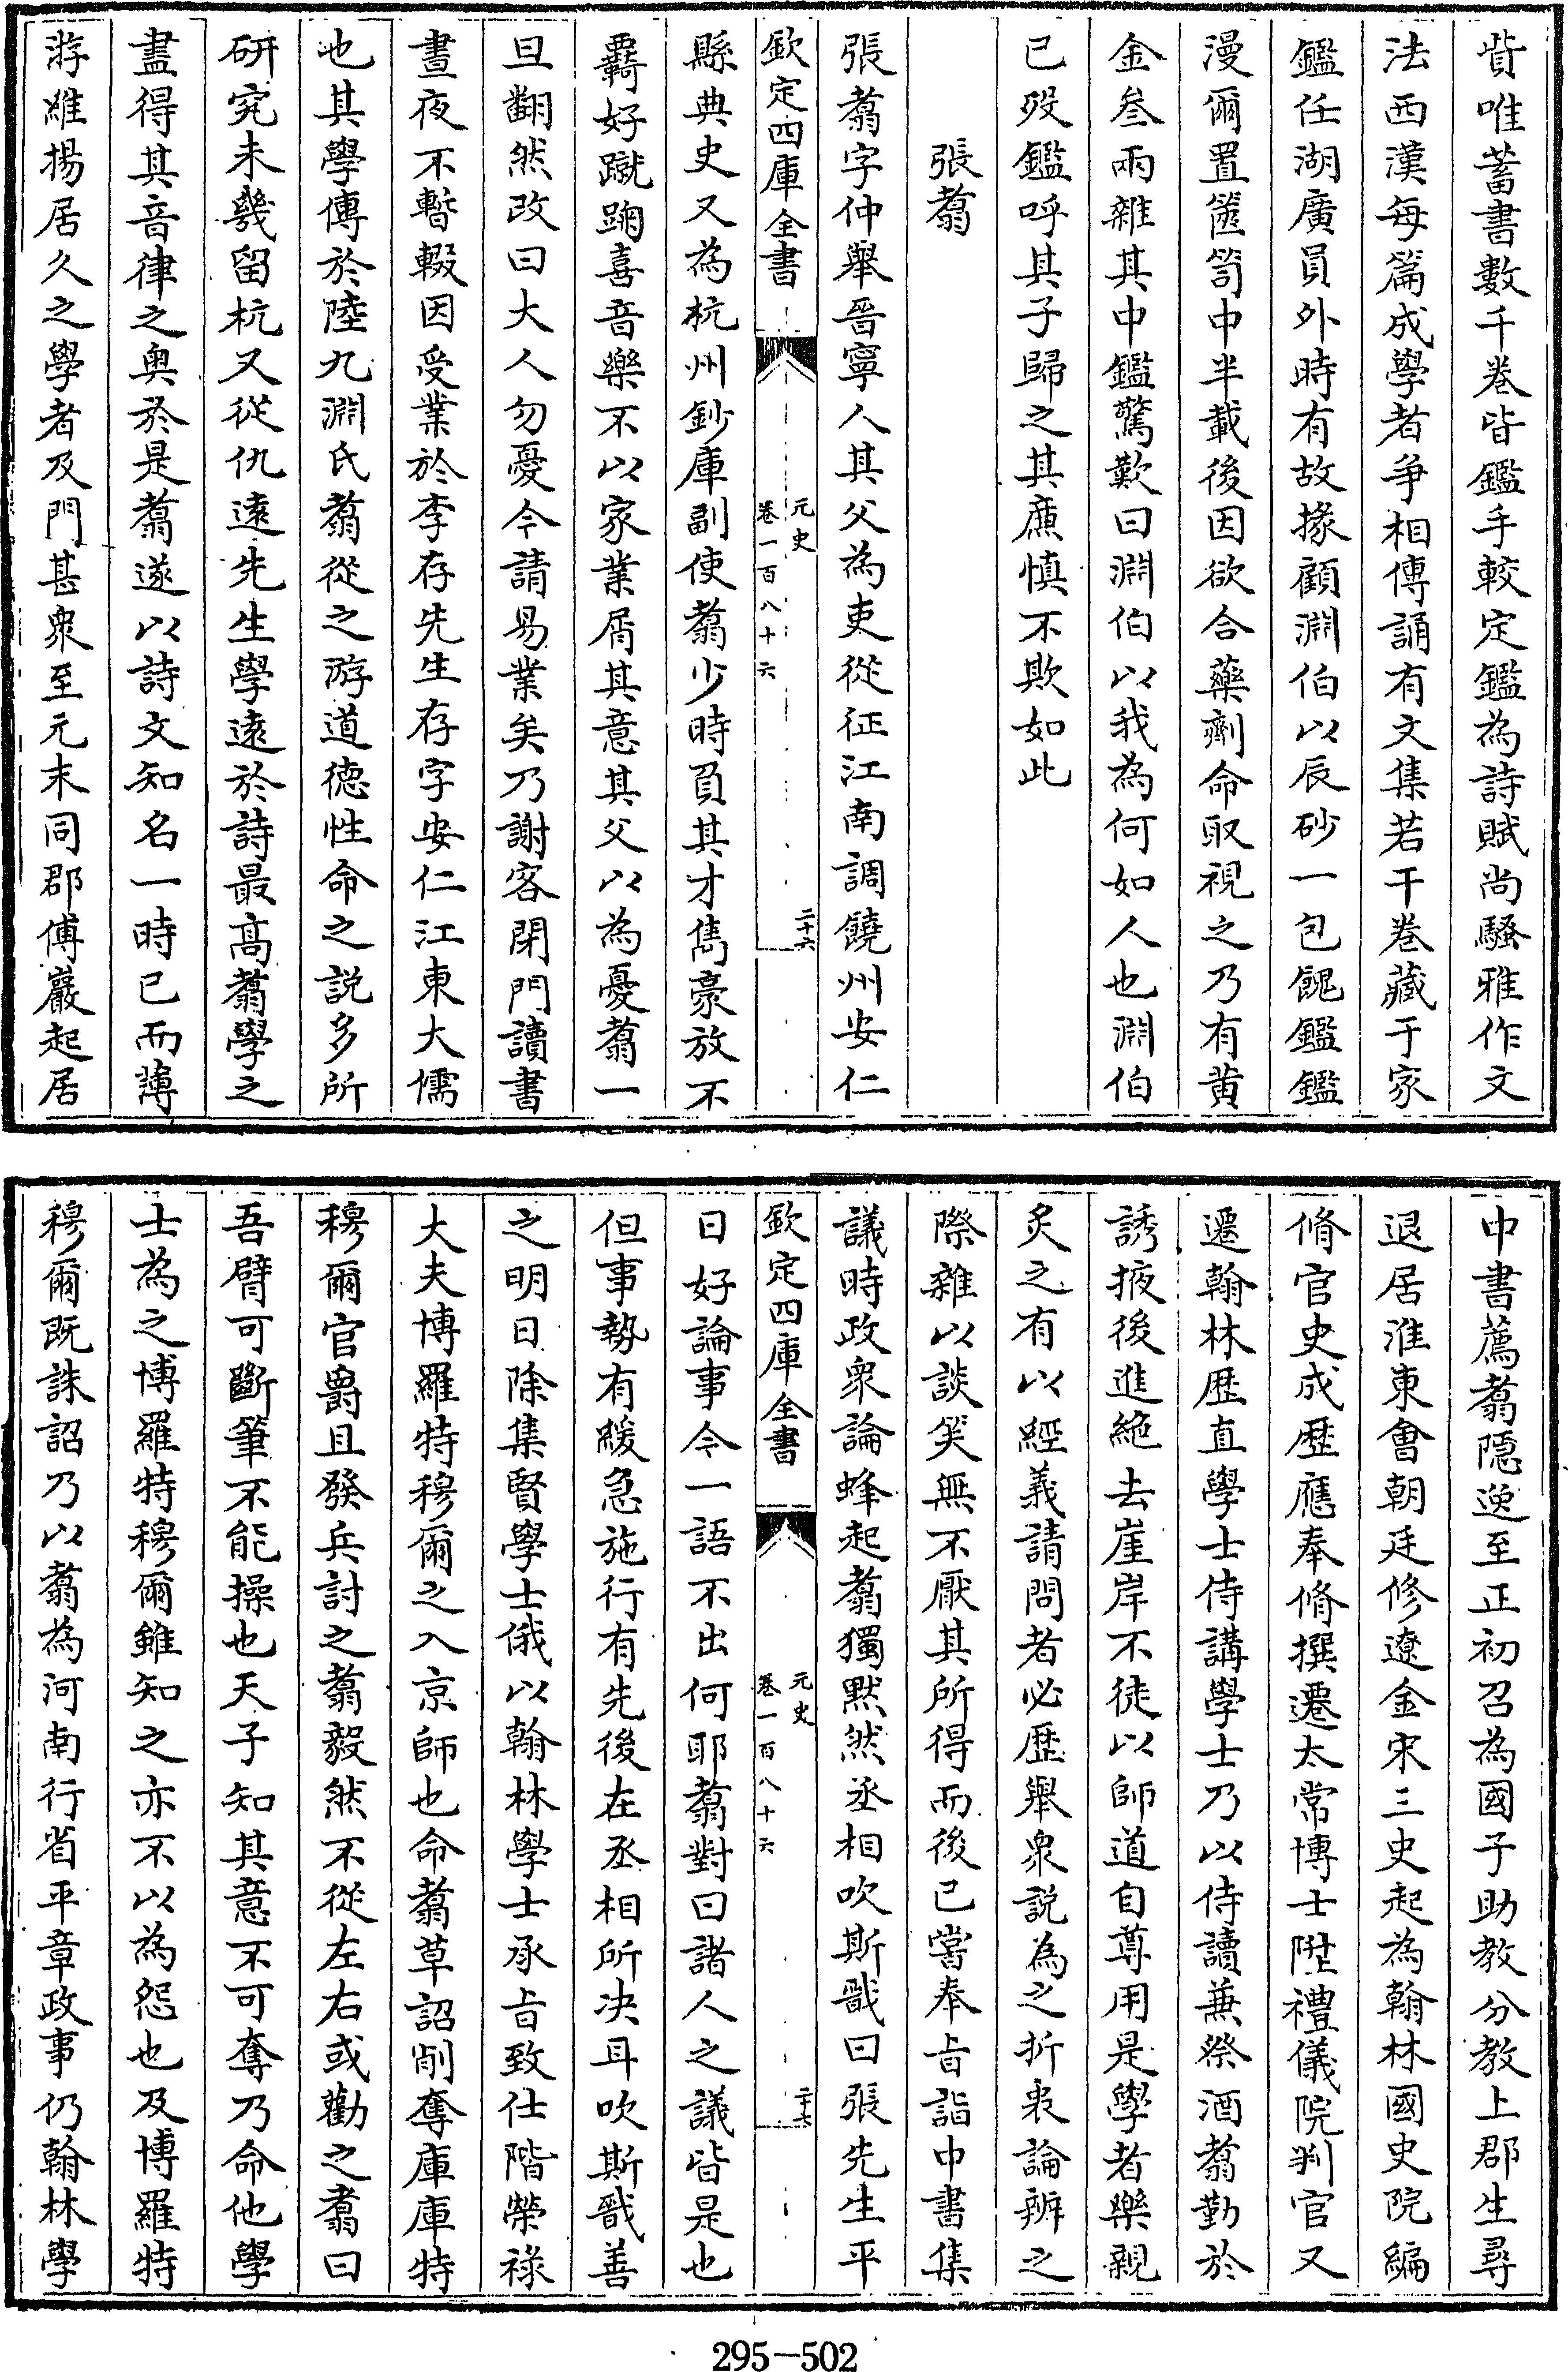 貲唯蓄書數千卷皆鑑手較定鑑為詩賦尚騷雅作文
法西漢每篇成學者爭相傳誦有文集若干卷藏于家
鑑任湖廣員外時有故掾顧淵伯以辰砂一包餽鑑鑑
漫爾置篋笥中半載後因欲合藥劑命取視之乃有黄
金叁兩雜其中鑑驚歎曰淵伯以我為何如人也淵伯
已歿鑑呼其子歸之其㢘慎不欺如此
張翥
張翥字仲舉晉寧人其父為吏從征江南調饒州安仁
欽定四庫全書
元史
卷一百八十六
二十六
縣典史又為杭州鈔庫副使翥少時負其才雋豪放不
羇好蹴踘喜音樂不以家業屑其意其父以為憂翥一
旦翻然改曰大人勿憂今請易業矣乃謝客閉門讀書
晝夜不暫輟因受業於李存先生存字安仁江東大儒
也其學傳於陸九淵氏翥從之游道德性命之説多所
研究未幾留杭又從仇遠先生學遠於詩最高翥學之
盡得其音律之奥於是翥遂以詩文知名一時已而薄
游維揚居久之學者及門甚衆至元末同郡傅巖起居
中書薦翥隱逸至正初召為國子助教分教上都生尋
退居淮東會朝廷修遼金宋三史起為翰林國史院編
脩官史成歴應奉脩撰遷太常博士陞禮儀院判官又
遷翰林歴直學士侍講學士乃以侍讀兼祭酒翥勤於
誘掖後進絶去崖岸不徒以師道自尊用是學者樂親
炙之有以經義請問者必歴舉衆説為之折衷論辨之
際雜以談笑無不厭其所得而後已嘗奉旨詣中書集
議時政衆論蜂起翥獨默然丞相吹斯戬曰張先生平
欽定四庫全書
元史
卷一百八十六
二十七
日好論事今一語不出何耶翥對曰諸人之議皆是也
但事勢有緩急施行有先後在丞相所决耳吹斯戬善
之明日除集賢學士俄以翰林學士承旨致仕階榮禄
大夫博羅特穆爾之入京師也命翥草詔削奪庫庫特
穆爾官爵且發兵討之翥毅然不從左右或勸之翥曰
吾臂可斷筆不能操也天子知其意不可奪乃命他學
士為之博羅特穆爾雖知之亦不以為怨也及博羅特
穆爾既誅詔乃以翥為河南行省平章政事仍翰林學
295-502